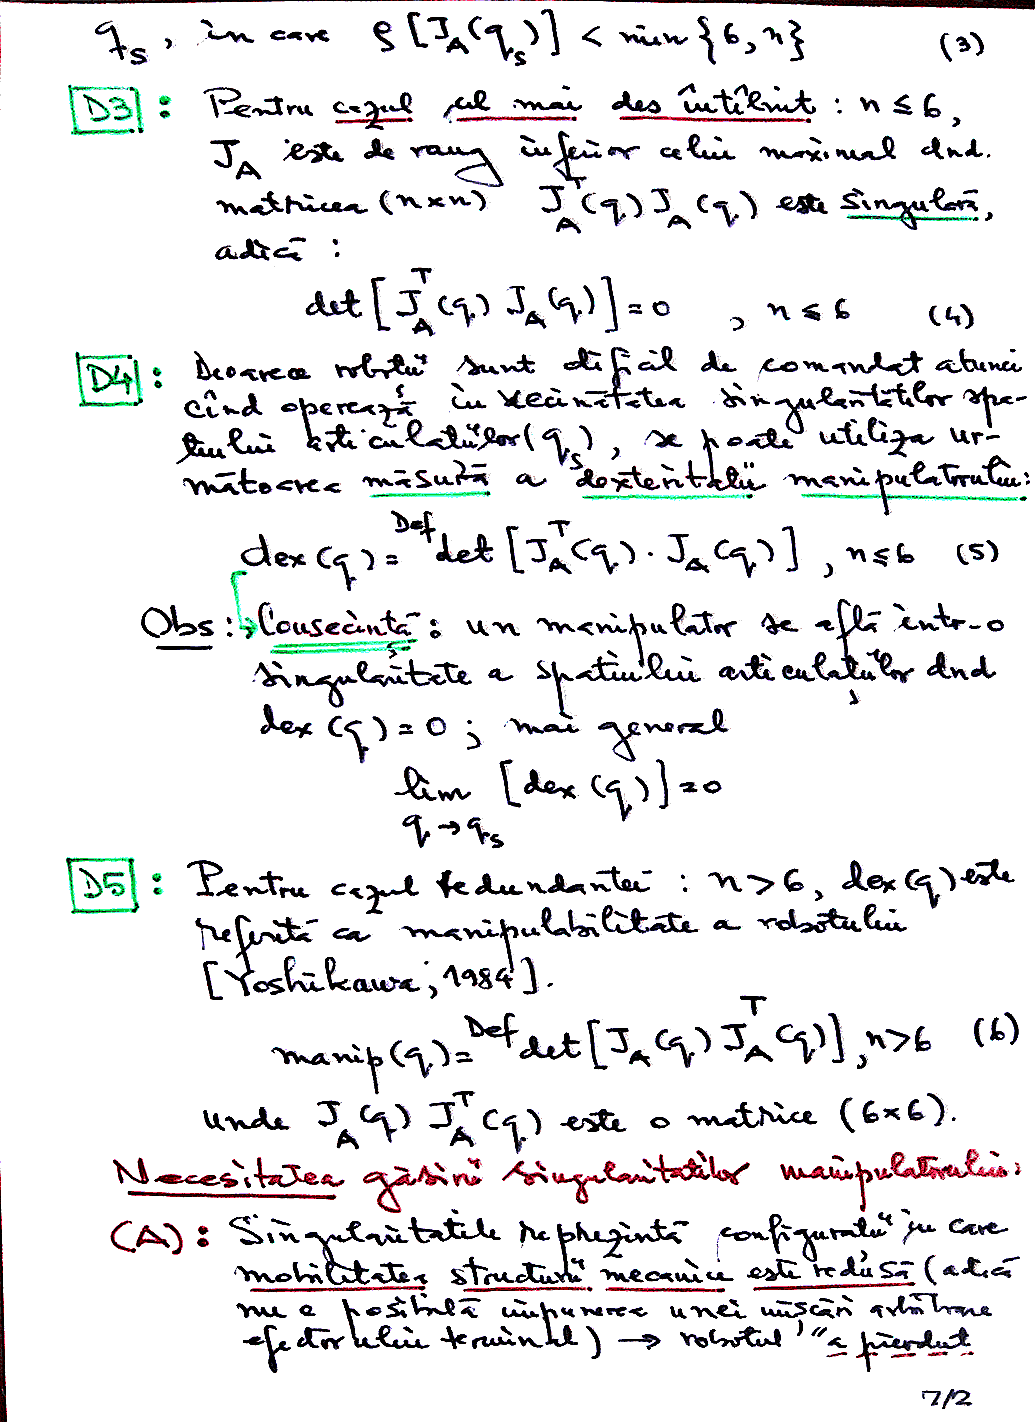 q_s, în care ρ[J_A(q_s)] < min{6,n} (3)
D3: Pentru cazul cel mai des întîlnit: n ≤ 6,
J_A este de rang inferior celui maximal dnd.
matricea (n×n) J_A^T(q) J_A(q) este singulară,
adică:
det[J_A^T(q) J_A(q)] = 0 , n ≤ 6 (4)
D4: Deoarece roboții sunt dificil de comandat atunci
cînd operează în vecinătatea singularităților spa-
țiului articulațiilor (q_s), se poate utiliza ur-
mătoarea măsură a "dexterității" manipulatorului:
dex(q) =^Def det[J_A^T(q) · J_A(q)], n ≤ 6 (5)
Obs: Consecință: un manipulator se află într-o
singularitate a spațiului articulațiilor dnd
dex(q) = 0; mai general
lim [dex(q)] = 0
q → q_s
D5: Pentru cazul redundanței: n > 6, dex(q) este
referită ca manipulabilitate a robotului
[Yoshikawa; 1984].
manip(q) =^Def det[J_A(q) J_A^T(q)], n > 6 (6)
unde J_A(q) J_A^T(q) este o matrice (6×6).
Necesitatea găsirii singularităților manipulatorului:
(A): Singularitățile reprezintă configurații în care
mobilitatea structurii mecanice este redusă (adică
nu e posibilă impunerea unei mișcări arbitrare
efectorului terminal) → robotul "a pierdut
7/2